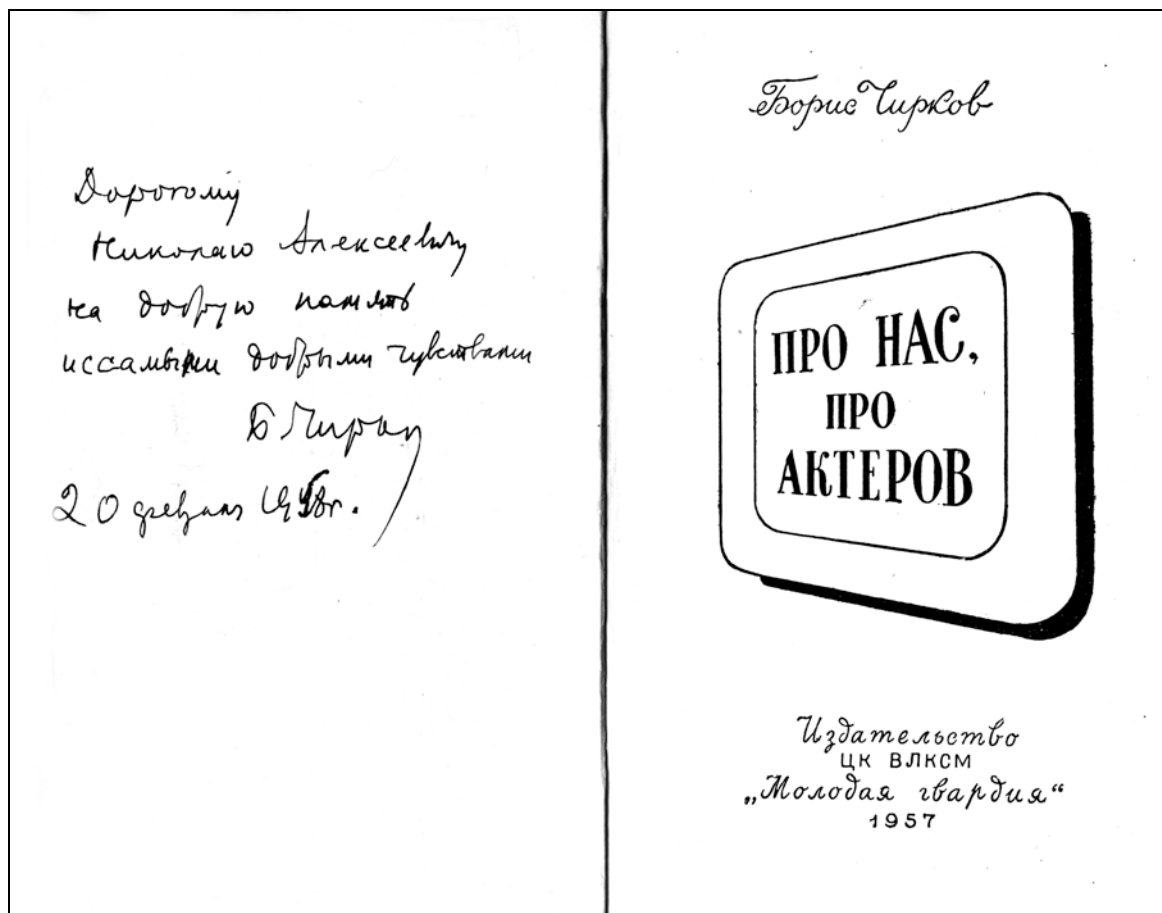 Дорогому
Николаю Алексеевичу
на добрую память
и с самыми добрыми чувствами
Б Чирков
20 февраля 1958г.
Борис Чирков
ПРО НАС,
ПРО
АКТЕРОВ
Издательство
ЦК ВЛКСМ
„Молодая гвардия“
1957